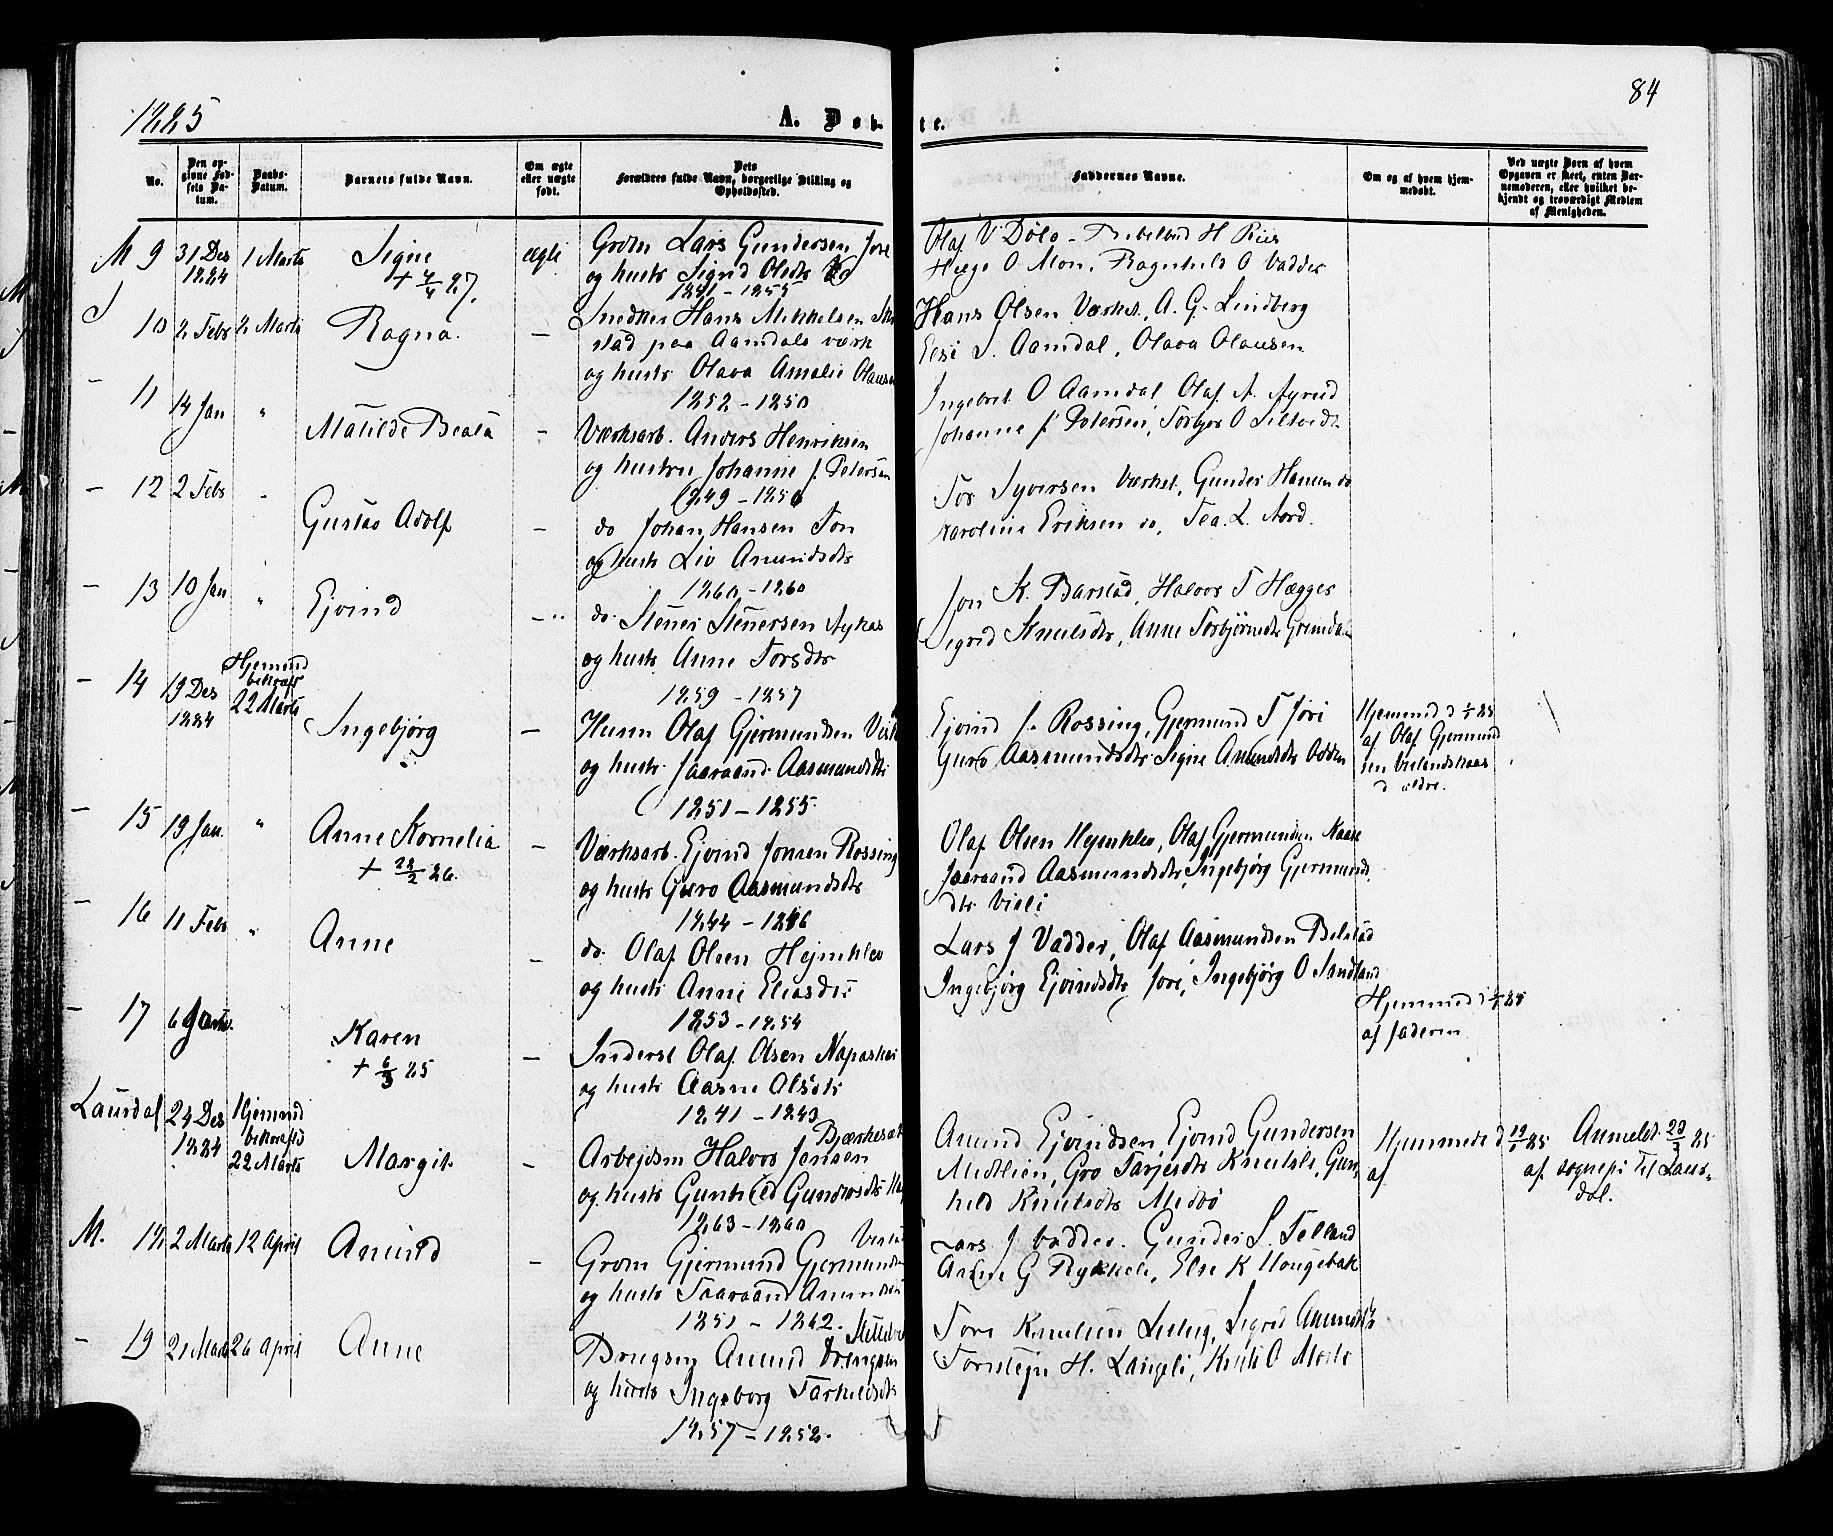 1885
A. Døb-
te.
84
No.
Den op-
givne Fød-
sels Da-
tum.
Daabs-
Datum.
Barnets fulde Navn.
Om ægte
eller uægte
født.
Dets
Forældres fulde Navn, borgerlige Stilling og
Opholdssted.
Faddernes Navne.
Om og af hvem hjem-
medøbt.
Ved uægte Børn af hvem
Opgaven er skeet, enten Bar-
nemoderen, eller hvilket be-
kjendt og troværdigt Medlem
af Menigheden.
M 9 31 Des 1884 1 Marts Signe + 7/4 87. ægte
Grdm Lars Gundersen Jore
og hustr Sigrid Olsdtr
1841 - 1855
Olaf V Dølo -
Hæge O Mon, Ragnhild O Vadder
10 2 Febr 2 Marts Ragna. -
Snedker Hans Mikkelsen
stad paa Aamdals værk
og hustr Olava Amalie Olausen
1852 - 1850
Hans Olsen Værket, A. G. Lindberg
Else S. Aamdal, Olava Olausen
- 11 14 Jan " Matilde Beata -
Værksarb. Anders Henriksen
og hustru Johanne J. Petersen
1849 - 1850
Ingebret O Aamdal Olaf A.
Johanne J Petersen, Torbjør O
- 12 2 Febr - Gustav Adolf -
do Johan Hansen Ton
og hustr Liv Amundsdtr
1860 - 1860
Tor Syversen Værket, Gunder Hansen do
Karoline Eriksen do, Tea. L. Nord.
- 13 10 Jan " Ejvind -
do. Stener Stenersen
og hustr Anne Torsdtr
1859 - 1857
Jon K. Barstad, Halvor T Hægger
Sigrid Knutsdtr, Anne Torbjørnsdtr Grimdalen
- 14 19 Des 1884 Hjemmed bekræft 22 Marts Ingebjørg -
Husm Olaf Gjermundsen
og hustr. Saaraand Aasmundsdtr
1851 - 1855
Ejvind J. Rossing, Gjermund T Jore
Guro Aasmundsdtr Signe Amundsdtr Odden
Hjemmed d 1/1 85
af Olaf Gjermund
sen Vislandskaas
d ældre.
- 15 19 Jan. " Anne Kornelia + 22/2 86. -
Værksarb. Ejvind Jonsen Rossing
og hustr Guro Aasmundsdtr
1844 - 1846
Olaf Olsen Hejmklev, Olaf Gjermundsen Kaase
Saaraand Aasmundsdtr, Ingebjørg Gjermunds
dtr Visli
- 16 11 Febr " Anne -
do. Olaf Olsen Hejmklev
og hustr Anne Eliasdtr
1853 - 1854
Lars J Vadder, Olaf Aasmundsen Belstad
Ingebjørg Ejvindsdtr Jore, Ingebjørg O Sandland
- 17 6 Karen + 6/3 85 -
Inderst Olaf Olsen
og hustr Aasne Olsdtr
1841 - 1843
Hjemmed
af faderen
Laurdal 24 Des 1884 Hjemmed bekræft 22 Marts Margit -
Arbejdsm Halvor Jensen
og hustr Gunhild Gundersdtr
1863 - 1860
Amund Ejvindsen, Ejvind Gundersen
Midtlien, Gro Tarjesdtr Knutsli, Gun-
hild Knutsdtr Midbø
Hjemmed d 19/1 85
af
Anmeldt 23/3 85
af sognepr til Laur-
dal.
M. 18 2 Marts 12 April Amund -
Grdm Gjermund Gjermundsen
og hustr Saaraand Amundsdtr
1851 - 1862.
Lars J Vadder. Gunder S. Felland
Aasne G Else K Haugebak
- 19 21 Marts 26 April Anne
Brugsm Amund
og hustr Ingeborg Tarkelsdtr
1857 - 1852.
Tore Knutsen Sigrid Amundsdtr
Torstein H. Langeli, Knut O